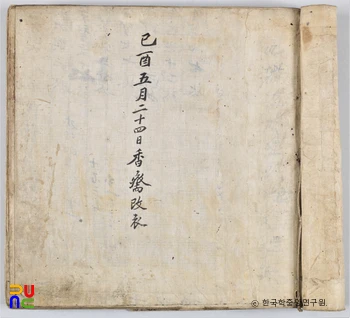 己酉五月二十四日香癡改衣
RUNS
© 한국학중앙연구원